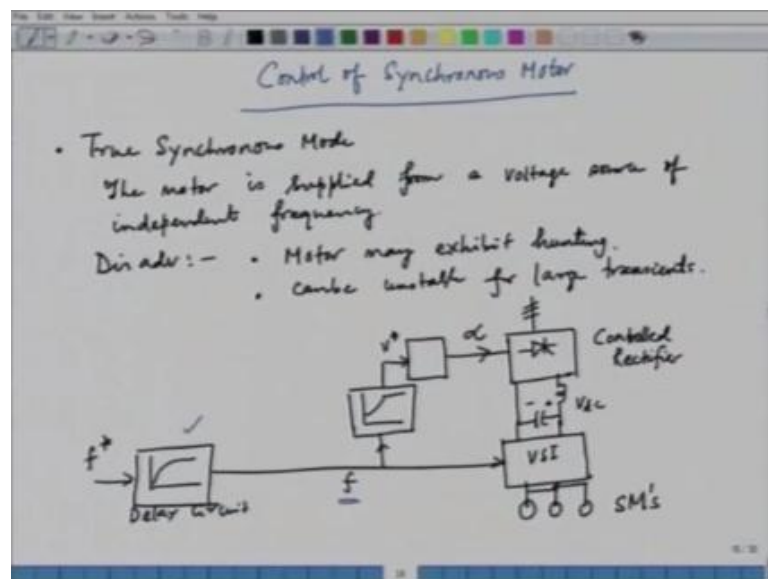 File Edit View Insert Actions Tools Help
Control of Synchronous Motor
• True Synchronous Mode
The motor is supplied from a voltage source of
independent frequency
Disadv:- • Motor may exhibit hunting.
• can be unstable for large transients.
v*
α
Controlled
Rectifier
- +
Vdc
f*
VSI
f
Delay Circuit
SM's